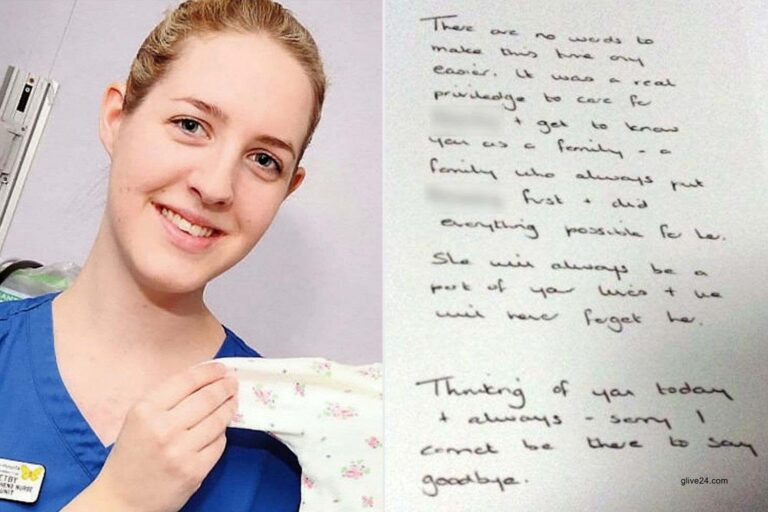 ETBY
NURSE
UNIT
There are no words to
make this time any
easier. It was a real
priviledge to care for
+ get to know
you as a family - a
family who always put
first + did
everything possible for her.
She will always be a
part of your lives + we
will never forget her.
Thinking of you today
+ always - sorry I
cannot be there to say
goodbye.
glive24.com